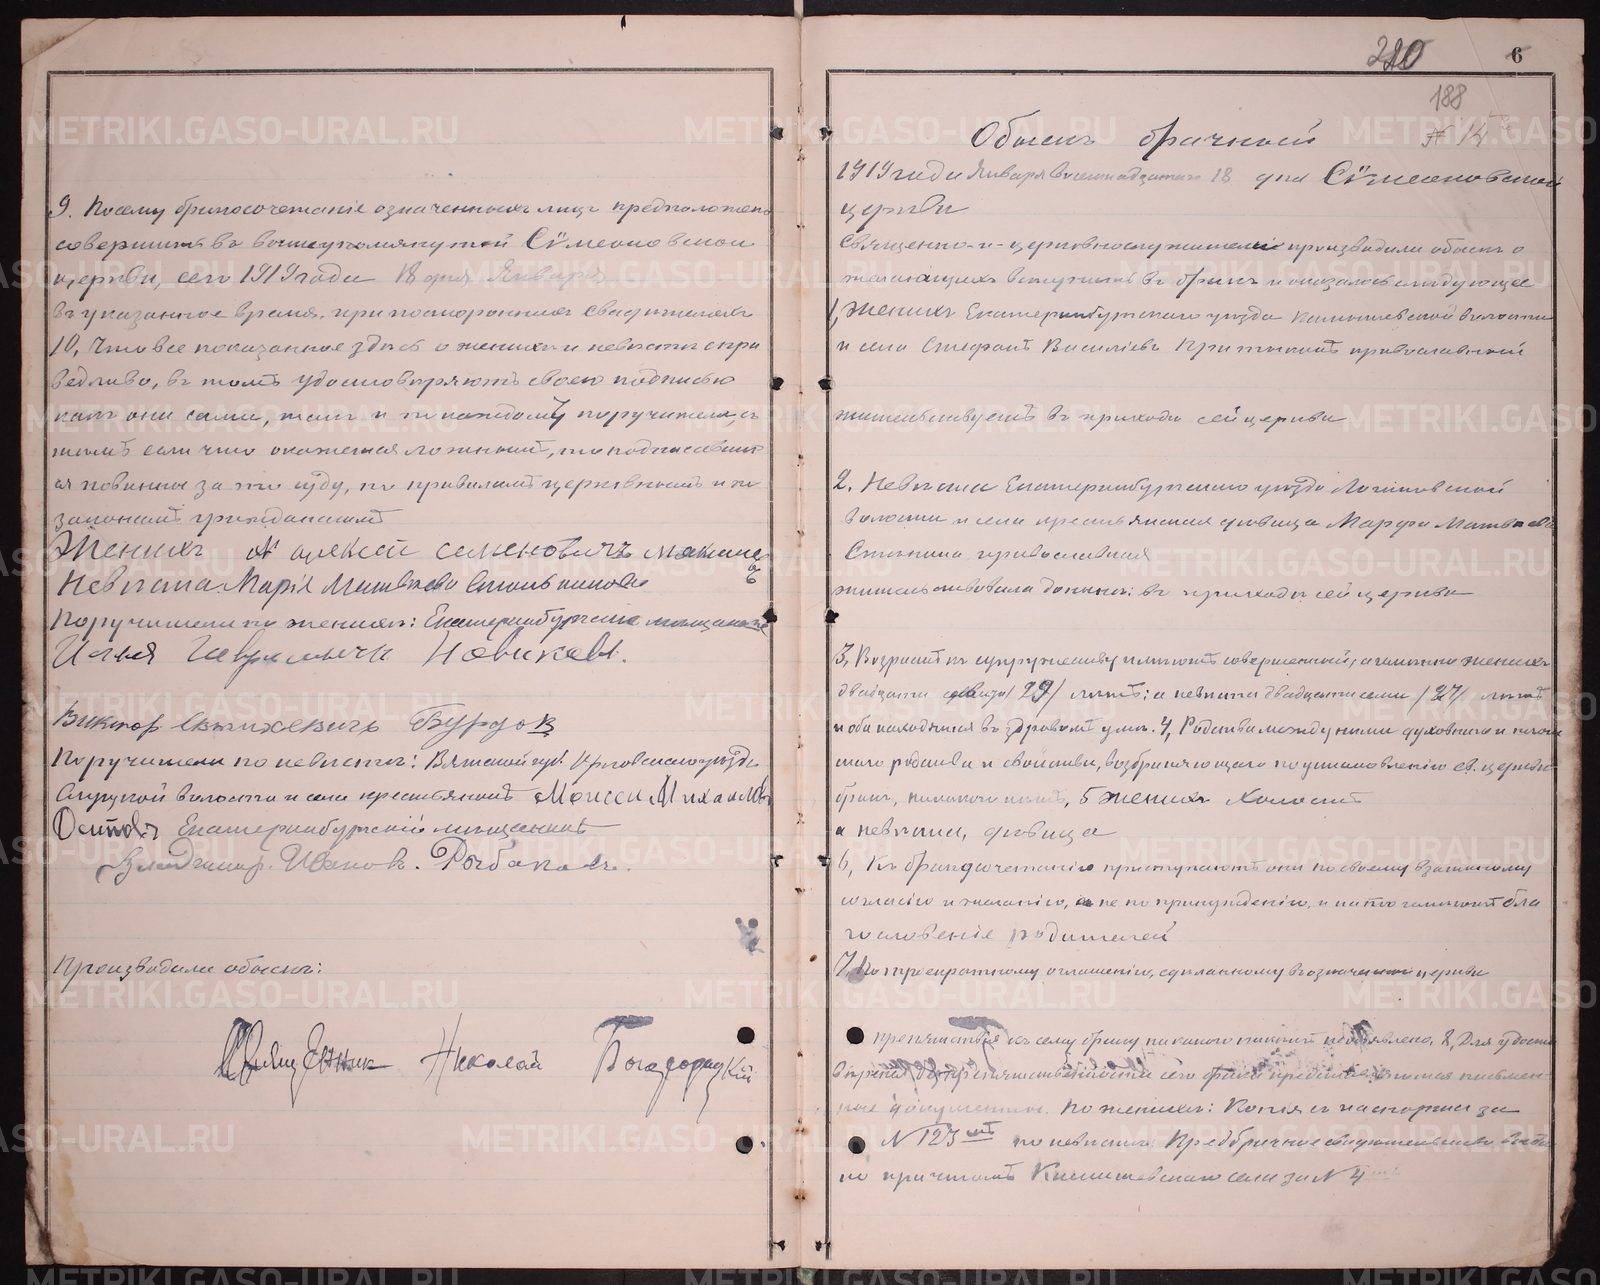 9. Посему бракосочетаніе означенныхъ лицъ предположено
совершить въ вышеупомянутой Сѵмеоновской
церкви, сего 1919 года 18 дня Января
въ указанное время, при постороннихъ свидѣтеляхъ
10, Что все показанное здѣсь о женихѣ и невѣстѣ спра
ведливо, въ томъ удостовѣряютъ своею подписью
какъ они сами, такъ и по каждому поручители, съ
тѣмъ если что окажется ложнымъ, то подписавшіе
ся повинны за то суду, по правиламъ церковнымъ и по
законамъ гражданскимъ
Женихъ Алексей Семеновичъ
Невѣста Марія Матвѣева
Поручители по женихѣ: Екатеринбургскіе мѣщане
Илья Гаврилычи Новиковъ.
Виктор Бурдов
Поручители по невѣстѣ: Вятской губ. Орловскаго уѣзда
волости и села крестьянинъ Моисей Михайлов
Осипов Екатеринбургскій мѣщанинъ
Владимир. Иванов. Рыбаковъ.
Производили обыскъ:
Священник Николай Богородицкій
210 6
188
Обыскъ брачный № 14
1919 года Января восемнадцатаго 18 дня Сѵмеоновской
церкви
Священно-и-церковнослужители производили обыскъ о
желающихъ вступить въ бракъ и оказалось слѣдующее
1, Женихъ Екатеринбургскаго уѣзда волости
и села Стефанъ Василіевъ православный
жительствуетъ въ приходѣ сей церкви
2. Невѣста Екатеринбургскаго уѣзда Логиновской
волости и села крестьянская дѣвица Марфа Матвѣева
православная
жительствовала донынѣ: въ приходѣ сей церкви
3, Возрастъ къ супружеству имѣютъ совершенный, а именно женихъ
двадцати девяти /29/ лѣтъ; а невѣста двадцати семи /27/ лѣтъ
и оба находятся въ здравомъ умѣ. 4, Родства между ними духовнаго и плот
скаго родства и свойства, возбраняющаго по установленію св. церкви
бракъ, никакого нѣтъ, 5 Женихъ Холостъ
а невѣста, дѣвица
6, Къ бракосочетанію приступаютъ они по своему взаимному
согласію и желанію, а не по принужденію, и на то имѣютъ бла
гословеніе родителей
7, По троекратному оглашенію, сдѣланному въ означенной церкви
препятствія къ сему браку никакого никѣмъ не объявлено, 8, Для удосто
вѣренія безпрепятственности сего брака представляются письмен-
ные документы. По женихѣ: Копія съ паспорта за
№ 123 по невѣстѣ: Предбрачное свидѣтельство выда
но причтомъ села за № 4